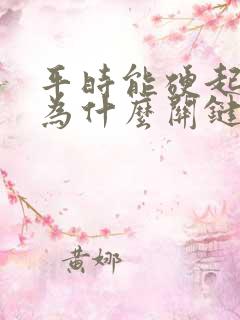 平時能硬起
為什麼關鍵
黃娜